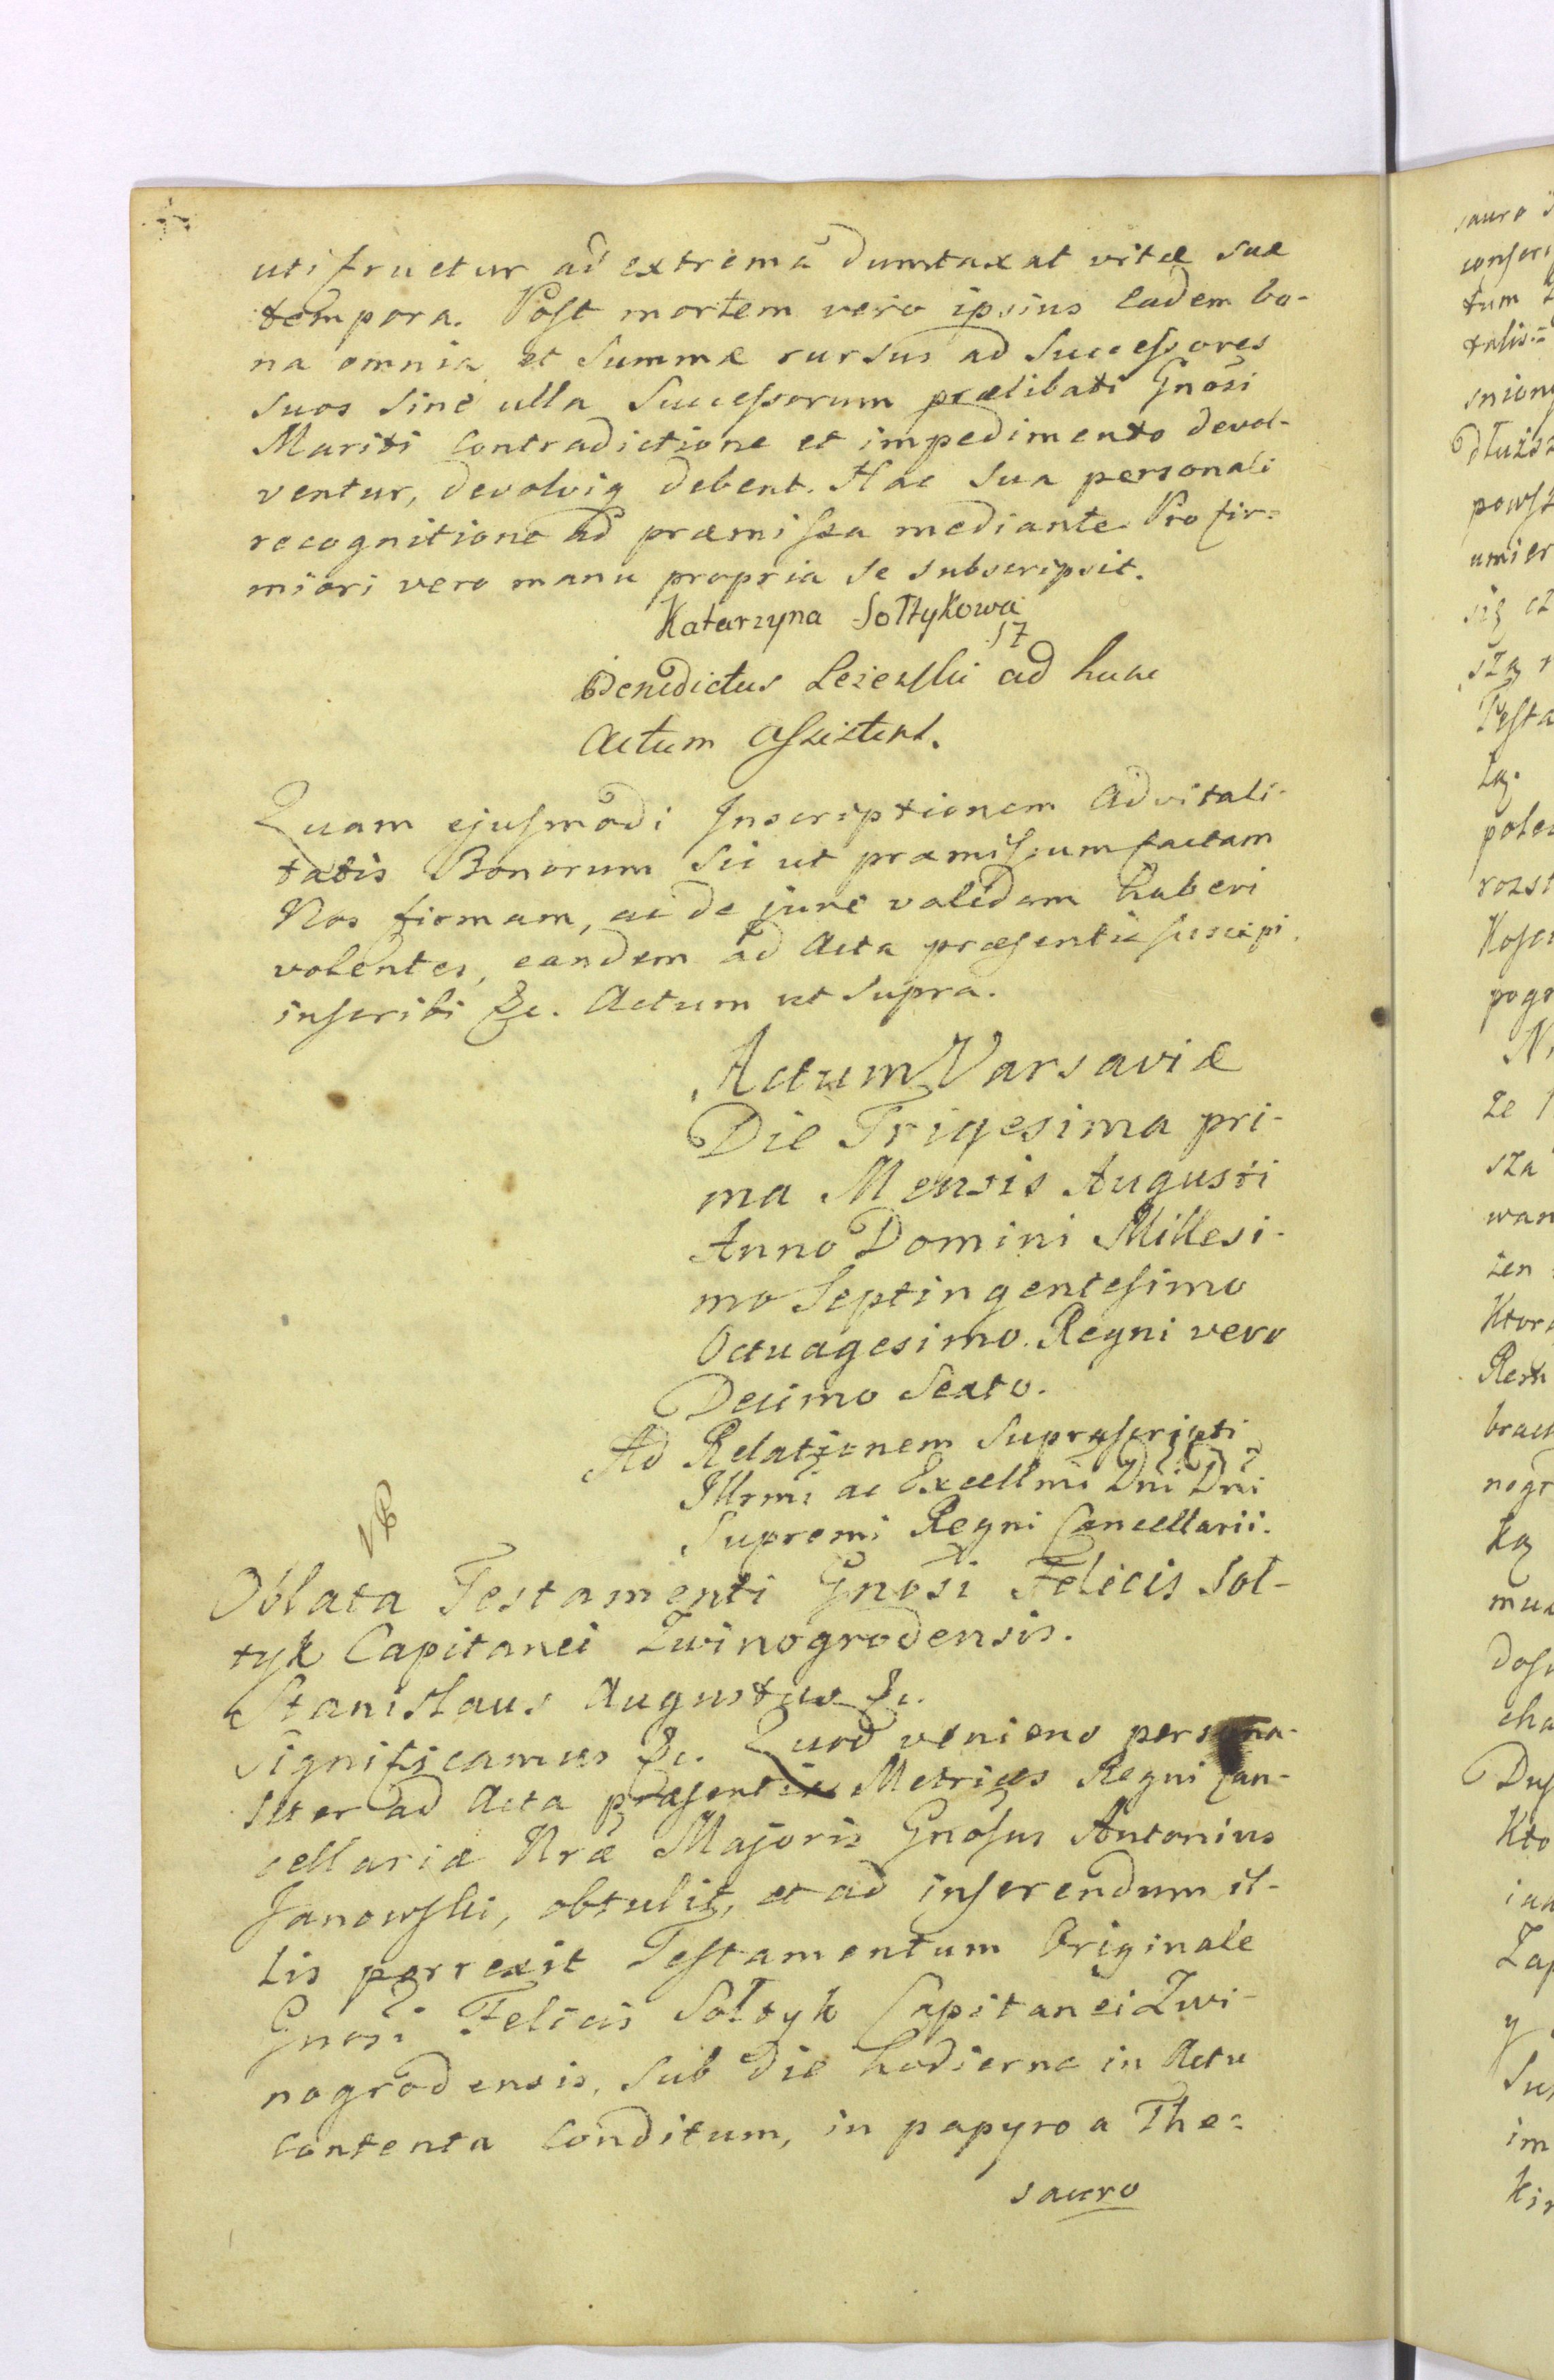 uti fructur ad extrema dumtaxat vitæ suæ
tempora. Post mortem vero ipsius Eadem bo-
na omnia et Summæ rursus ad Successores
suos sine ulla Successorum prælibati Gnosi
Mariti Contradictione et impedimento devol-
ventur, devolviq debent. Hac Sua personali
recognitione ad præmissa mediante. Pro fir=
miori vero manu propria se subscripsit.
Katarzyna Sołtykowa
Benedictus Lezewski ad hunc
Actum Assistens.
Quam ejusmodi Inscriptionem Advitali-
tatis Bonorum Sic ut præmissum factam
Nos firmam, ac de jure validam haberi
volentes, eandem ad Acta præsentia suscipi
inscribi &c. Actum ut supra.
Actum Varsaviæ
Die Trigesima pri-
ma Mensis Augusti
Anno Domini Millesi-
mo Septingentesimo
Octuagesimo. Regni vero
Decimo Sexto.
Ad Relationem Suprascripti
Illrmi ac Excellmi Dni Dni
Supremi Regni Cancellarii.
NB
Oblata Testamenti Gnosi Felicis Sol-
tyk Capitanei Zwinogrodensis.
Stanislaus Augustus &c.
Significamus &c. Quod veniens persona-
liter ad Acta præsentia Metrices Regni Can-
cellariæ Nræ Majoris Gnosus Antonius
Janowski, obtulit, et ad inserendum il-
lis porrexit Testamentum Originale
Gnosi Felicis Sołtyk Capitanei Zwi-
nogrodensis, Sub die hodierna in Actu
contenta Conditum, in papyro a The=
sauro